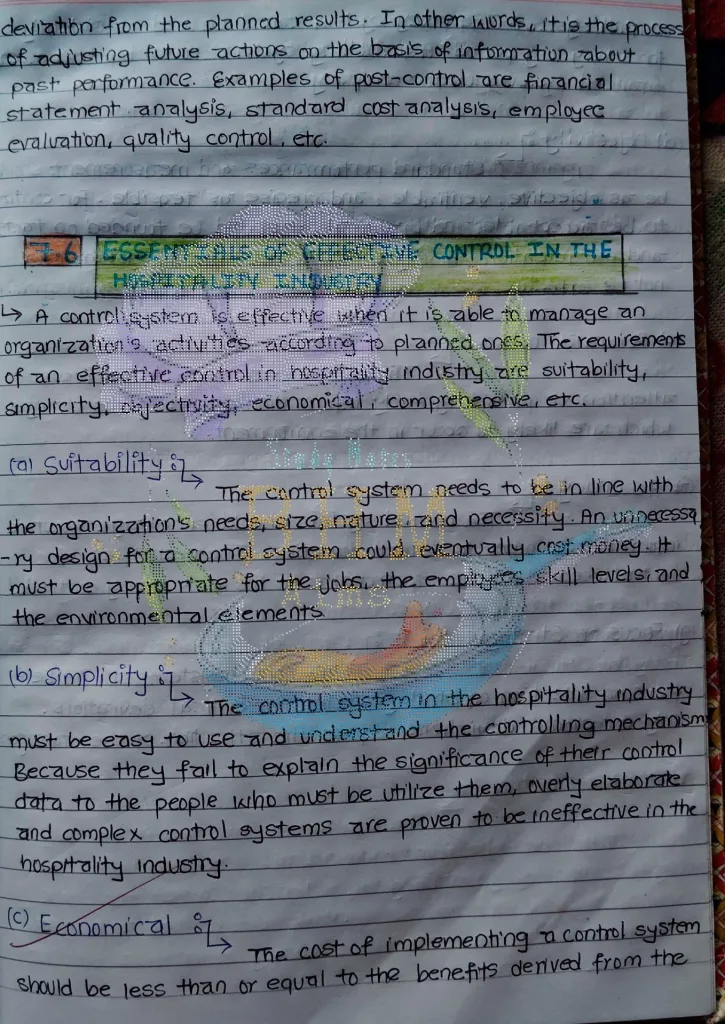 deviation from the planned results. In other words, it is the process
of adjusting future actions on the basis of information about
past performance. Examples of post-control are financial
statement analysis, standard cost analysis, employee
evaluation, quality control, etc.
7.6 ESSENTIALS OF EFFECTIVE CONTROL IN THE
HOSPITALITY INDUSTRY
↳ A control system is effective when it is able to manage an
organization's activities according to planned ones. The requirements
of an effective control in hospitality industry are suitability,
simplicity, objectivity, economical, comprehensive, etc.
(a) Suitability :
↳ The control system needs to be in line with
the organization's needs, size, nature, and necessity. An unnecessa
-ry design for a control system could eventually cost money. It
must be appropriate for the jobs, the employees skill levels, and
the environmental elements
(b) Simplicity :
↳ The control system in the hospitality industry
must be easy to use and understand the controlling mechanism
Because they fail to explain the significance of their control
data to the people who must be utilize them, overly elaborate
and complex control systems are proven to be ineffective in the
hospitality industry.
(c) Economical :
↳ The cost of implementing a control system
should be less than or equal to the benefits derived from the
Study Notes
BHM